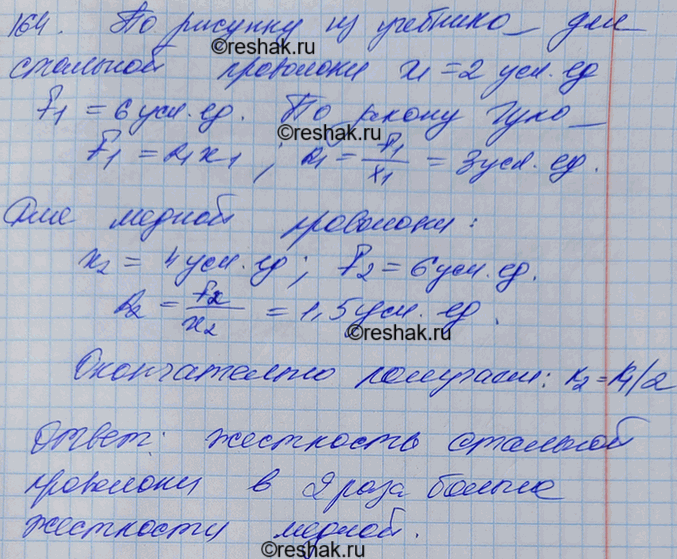 164. По рисунку из учебника_ для
©reshak.ru
стальной проволоки x₁ = 2 усл. ед
F₁ = 6 усл. ед. По закону Гука_
©reshak.ru
F₁ = k₁x₁ ; k₁ = F₁/x₁ = 3 усл. ед.
Для медной проволоки:
x₂ = 4 усл. ед; F₂ = 6 усл. ед.
k₂ = F₂/x₂ = 1,5 усл. ед.
©reshak.ru
Окончательно получаем: k₂ = k₁/2
Ответ: жесткость стальной
проволоки в 2 раза больше
жесткости медной.
©reshak.ru